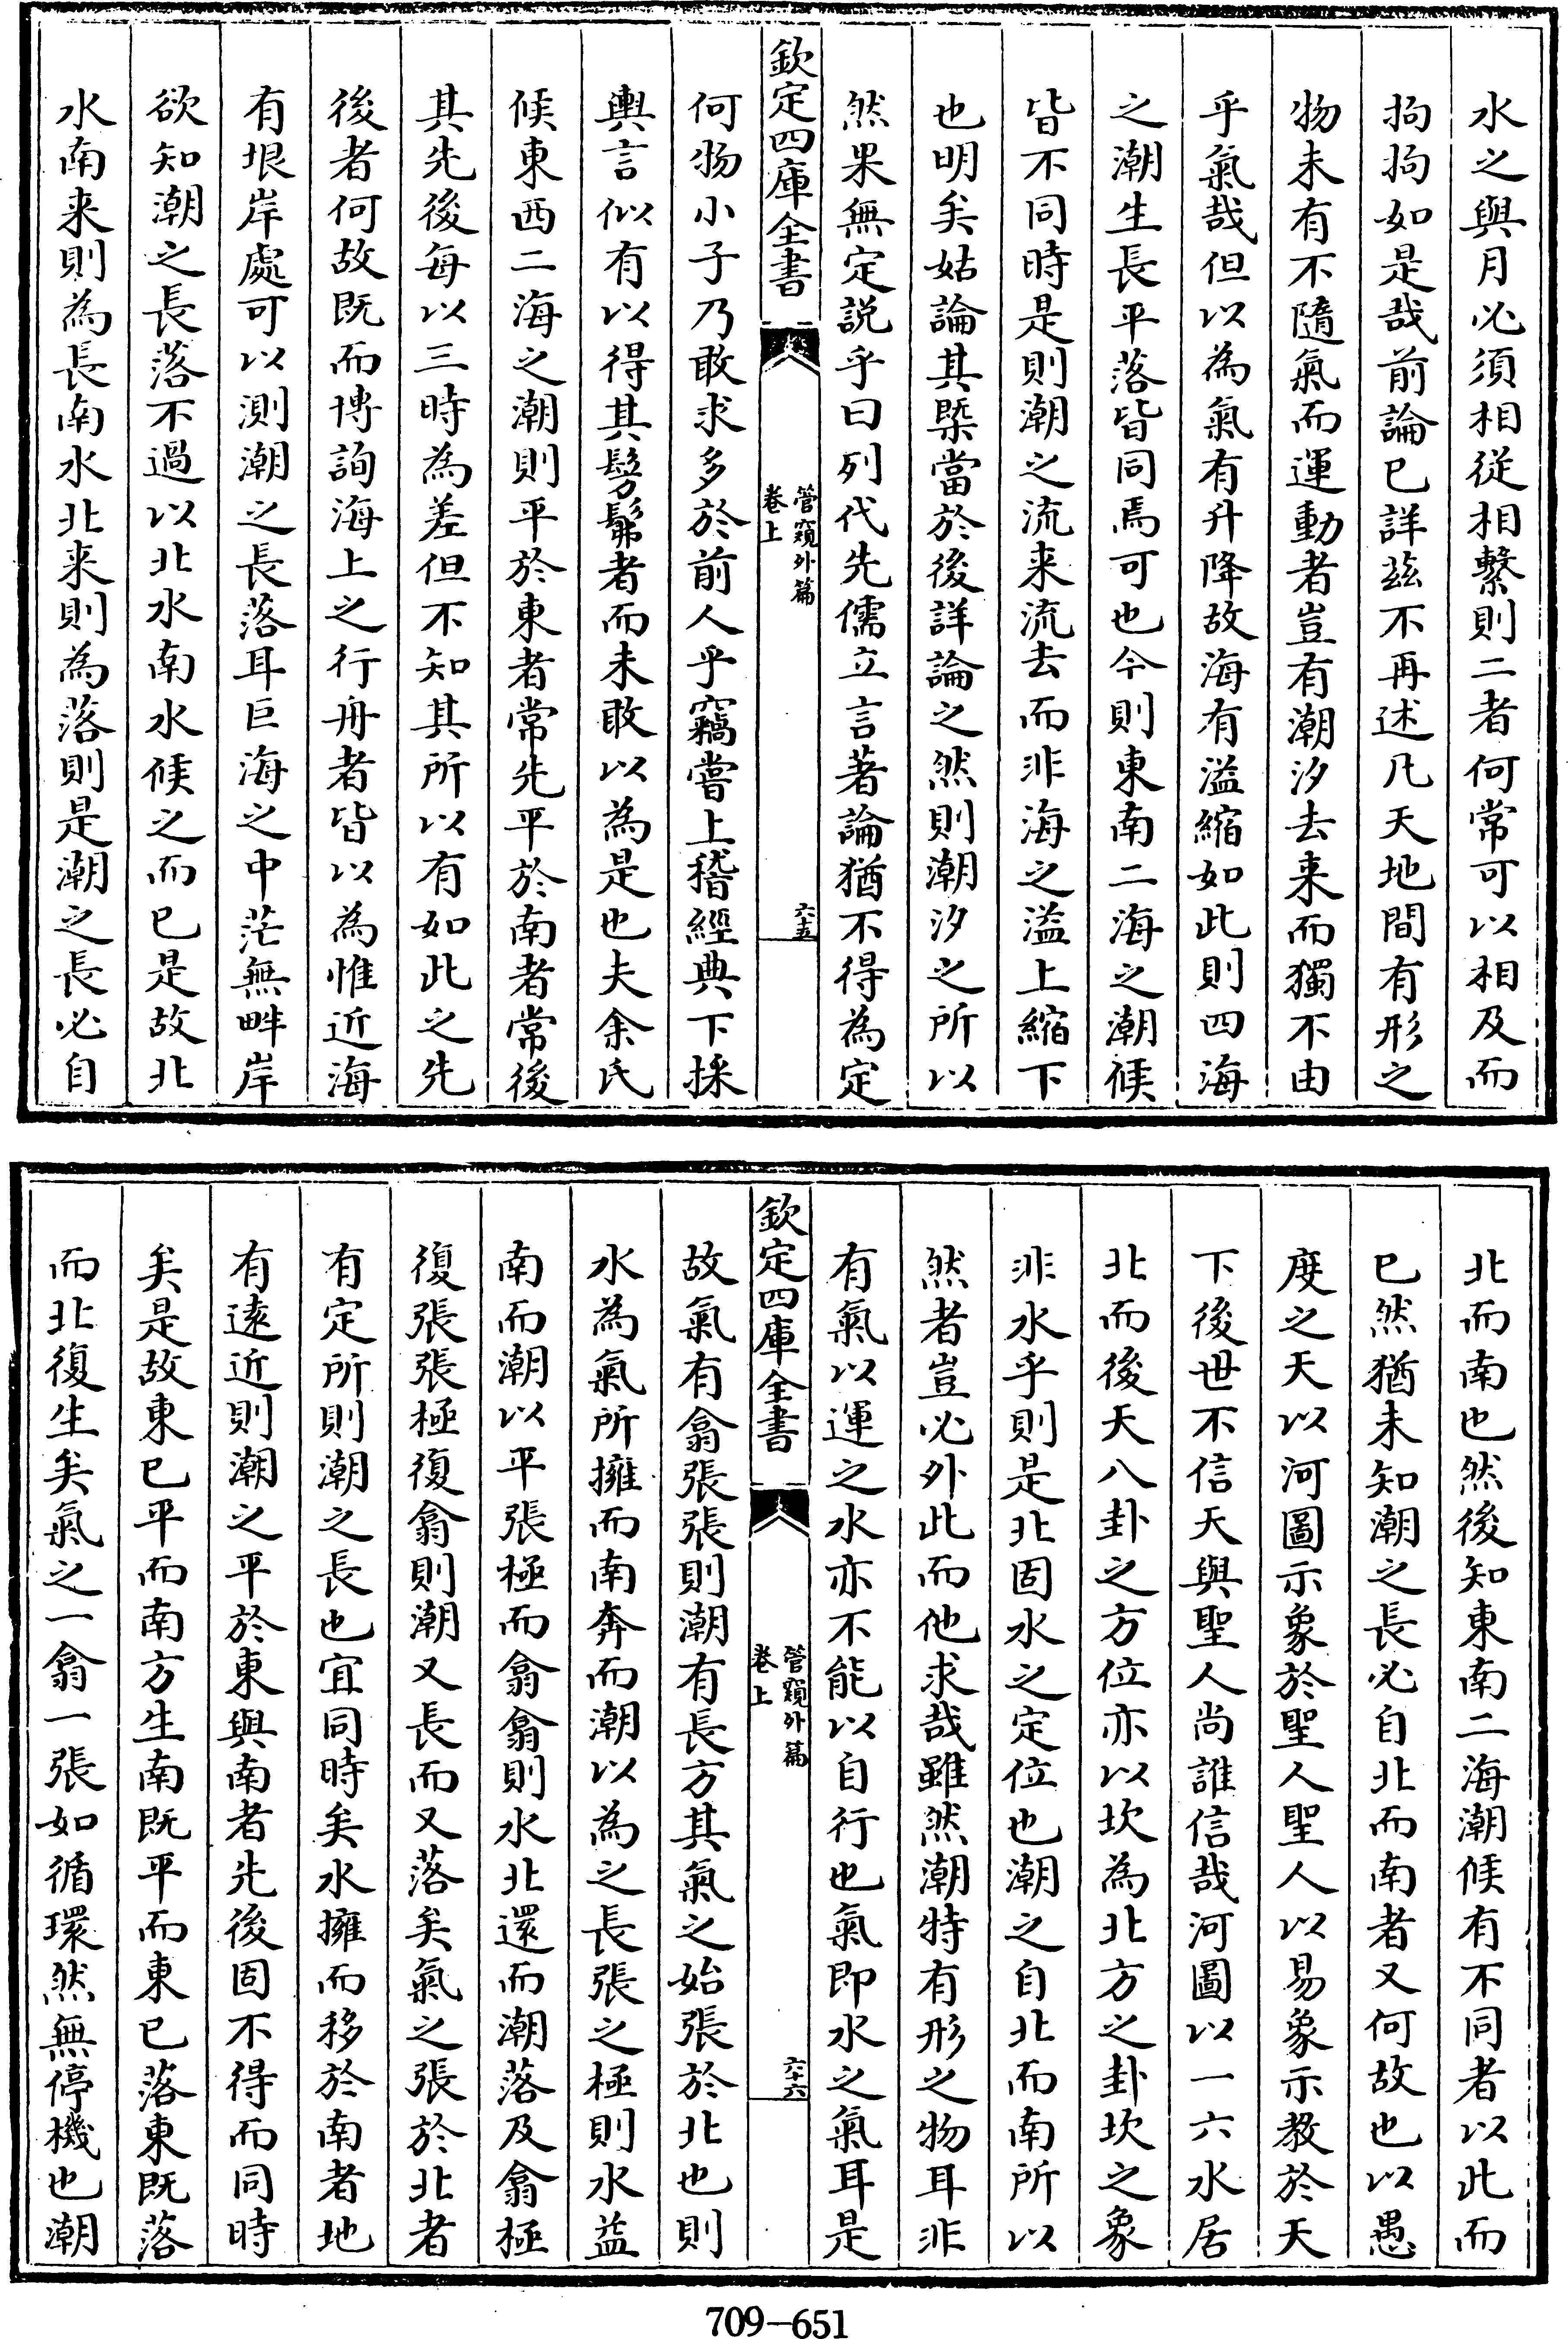 水之與月必須相從相繫則二者何常可以相及而
拘拘如是哉前論已詳兹不再述凡天地間有形之
物未有不隨氣而運動者豈有潮汐去来而獨不由
乎氣哉但以為氣有升降故海有溢縮如此則四海
之潮生長平落皆同焉可也今則東南二海之潮候
皆不同時是則潮之流来流去而非海之溢上縮下
也明矣姑論其槩當於後詳論之然則潮汐之所以
然果無定説乎曰列代先儒立言著論猶不得為定
欽定四庫全書
管窺外篇
卷上
六十五
何物小子乃敢求多於前人乎竊嘗上稽經典下採
輿言似有以得其髣髴者而未敢以為是也夫余氏
候東西二海之潮則平於東者常先平於南者常後
其先後每以三時為差但不知其所以有如此之先
後者何故既而博詢海上之行舟者皆以為惟近海
有垠岸處可以測潮之長落耳巨海之中茫無畔岸
欲知潮之長落不過以北水南水候之而已是故北
水南来則為長南水北来則為落則是潮之長必自
北而南也然後知東南二海潮候有不同者以此而
已然猶未知潮之長必自北而南者又何故也以愚
度之天以河圖示象於聖人聖人以易象示教於天
下後世不信天與聖人尚誰信哉河圖以一六水居
北而後天八卦之方位亦以坎為北方之卦坎之象
非水乎則是北固水之定位也潮之自北而南所以
然者豈必外此而他求哉雖然潮特有形之物耳非
有氣以運之水亦不能以自行也氣即水之氣耳是
欽定四庫全書
管窺外篇
卷上
六十六
故氣有翕張張則潮有長方其氣之始張於北也則
水為氣所擁而南奔而潮以為之長張之極則水益
南而潮以平張極而翕翕則水北還而潮落及翕極
復張張極復翕則潮又長而又落矣氣之張於北者
有定所則潮之長也宜同時矣水擁而移於南者地
有遠近則潮之平於東與南者先後固不得而同時
矣是故東已平而南方生南既平而東已落東既落
而北復生矣氣之一翕一張如循環然無停機也潮
709-651